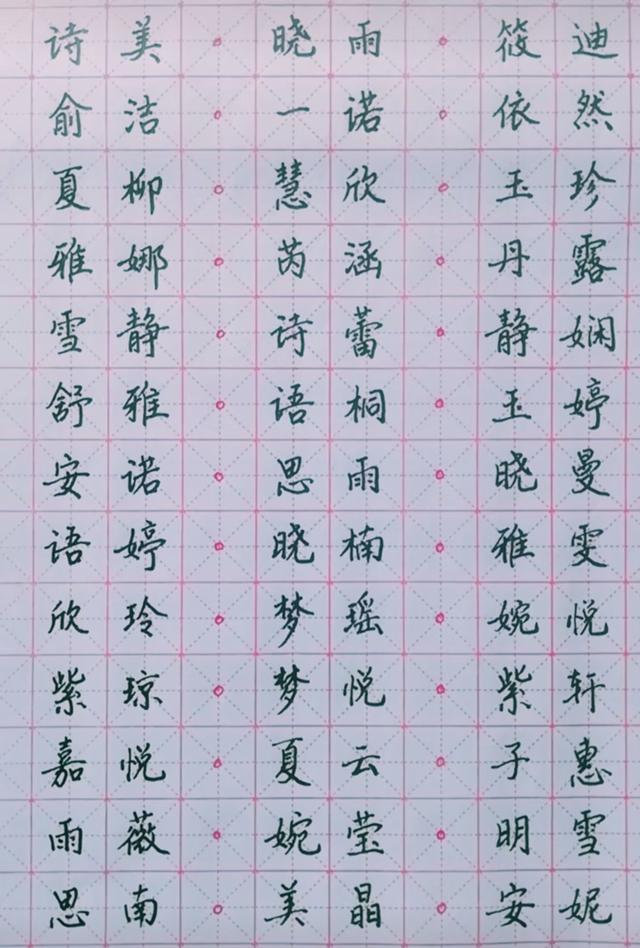 诗美。晓雨。筱迪
俞洁。一诺。依然
夏柳。慧欣。玉珍
雅娜。芮涵。丹露
雪静。诗蕾。静娴
舒雅。语桐。玉婷
安诺。思雨。晓曼
语婷。晓楠。雅雯
欣玲。梦瑶。婉悦
紫琼。梦悦。紫轩
嘉悦。夏云。子惠
雨薇。婉莹。明雪
思南。美晶。安妮